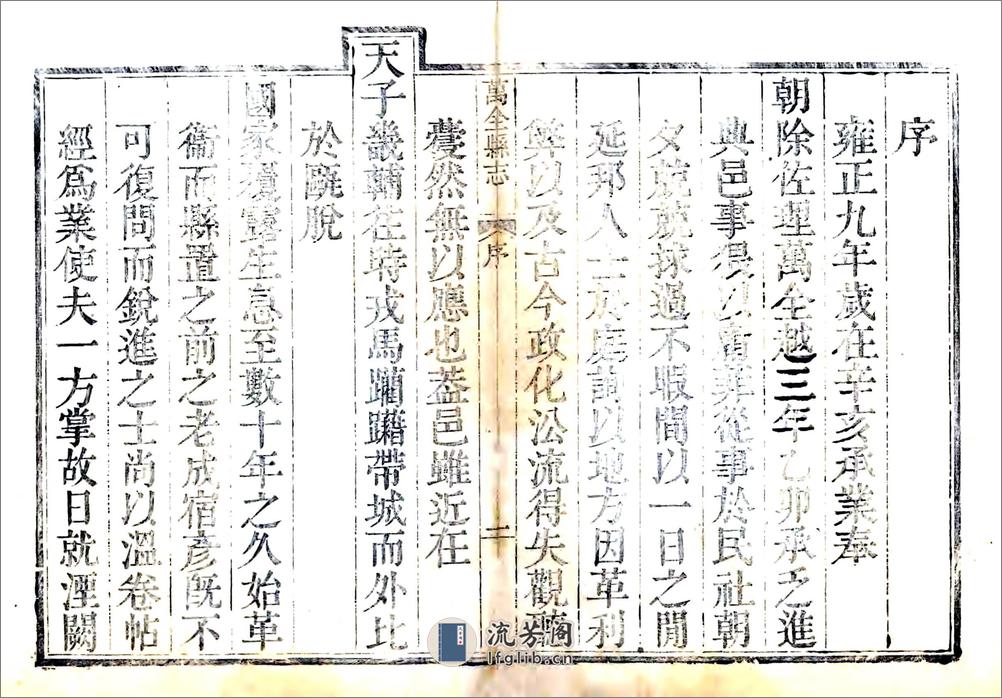 序
雍正九年歲在辛亥承業奉
朝除佐理萬全越三年乙卯承之進
典邑事猥以菲從事於民社朝
夕兢兢捄過不暇間以一日之閒
延邦人士於庭詢以地方因革利
弊以及古今政化沿流得失觀
萬全縣志
序
二
然無以應也葢邑雖近在
天子畿輔往時戎馬躪躤帶城而外比
於脫
國家生息至數十年之久始革
衞而縣置之前之老成宿彥旣不
可復問而銳進之士尚以溫卷帖
經爲業使夫一方掌故日就湮闕
流芳閣
lfglib.cn